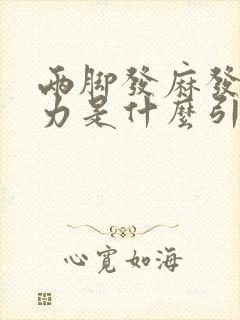 兩脚發麻發
力是什麽引
心寬如海